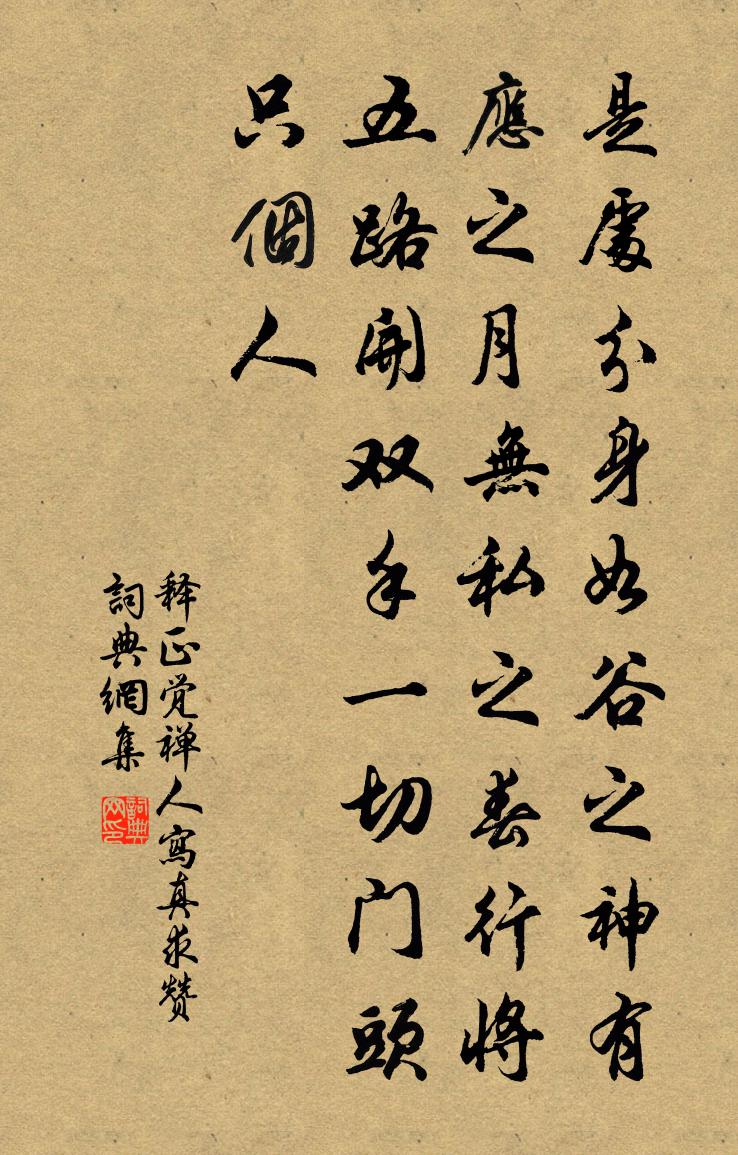 是處分身如谷之神有
應之月無私之春行將
五路開双手一切门頭
只個人
释正觉禅人寫真求赞
詞典網集
詞典网印